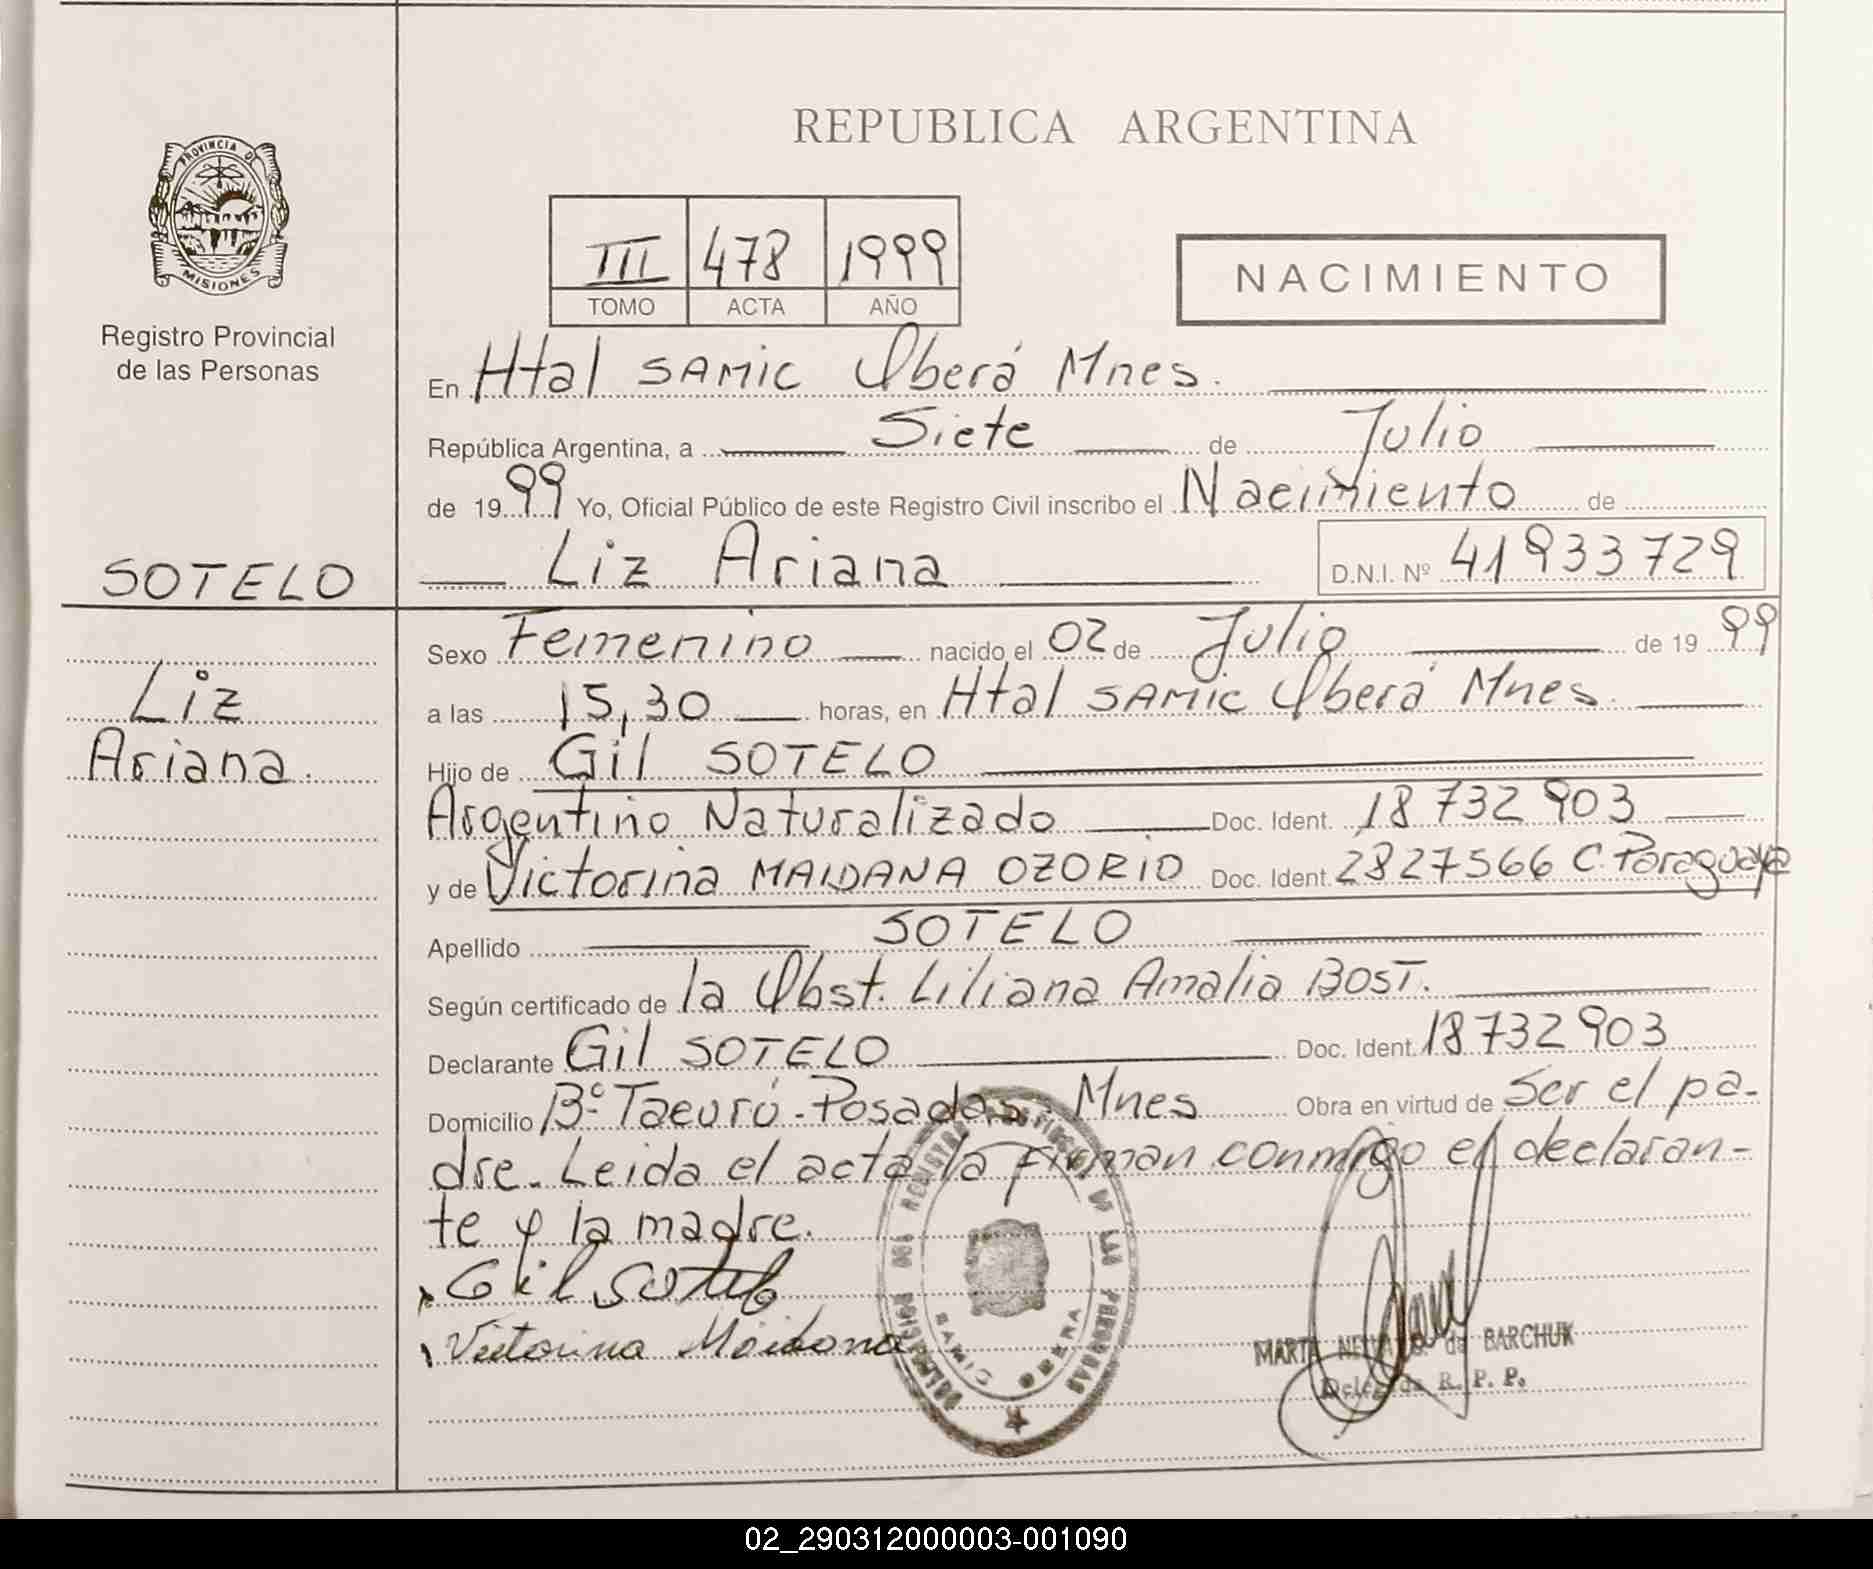 REPUBLICA ARGENTINA
PROVINCIA DE
MISIONES
Registro Provincial
de las Personas
III 478 1999
TOMO ACTA AÑO
NACIMIENTO
En Htal SAMIC Oberá Mnes.
República Argentina, a Siete de Julio
de 1999 Yo, Oficial Público de este Registro Civil inscribo el Nacimiento de
SOTELO
Liz Ariana D.N.I. Nº 41933729
Liz
Ariana.
Sexo Femenino nacido el 02 de Julio de 1999
a las 15,30 horas, en Htal SAMIC Oberá Mnes.
Hijo de Gil SOTELO
Argentino Naturalizado Doc. Ident. 18 732 903
y de Victorina MAIDANA OZORIO Doc. Ident. 2827566 C. Paraguaya
Apellido SOTELO
Según certificado de la Obst. Liliana Amalia BOST.
Declarante Gil SOTELO Doc. Ident. 18732903
Domicilio Bº. Tacurú - Posadas - Mnes Obra en virtud de Ser el pa-
dre. Leida el acta la firman conmigo el declaran-
te y la madre.
Gil Sotelo
Victorina Maidana
REGISTRO DE LAS PERSONAS
SAMIC OBERA
MARTA de BARCHUK
Delegada R. P. P.
02_290312000003-001090